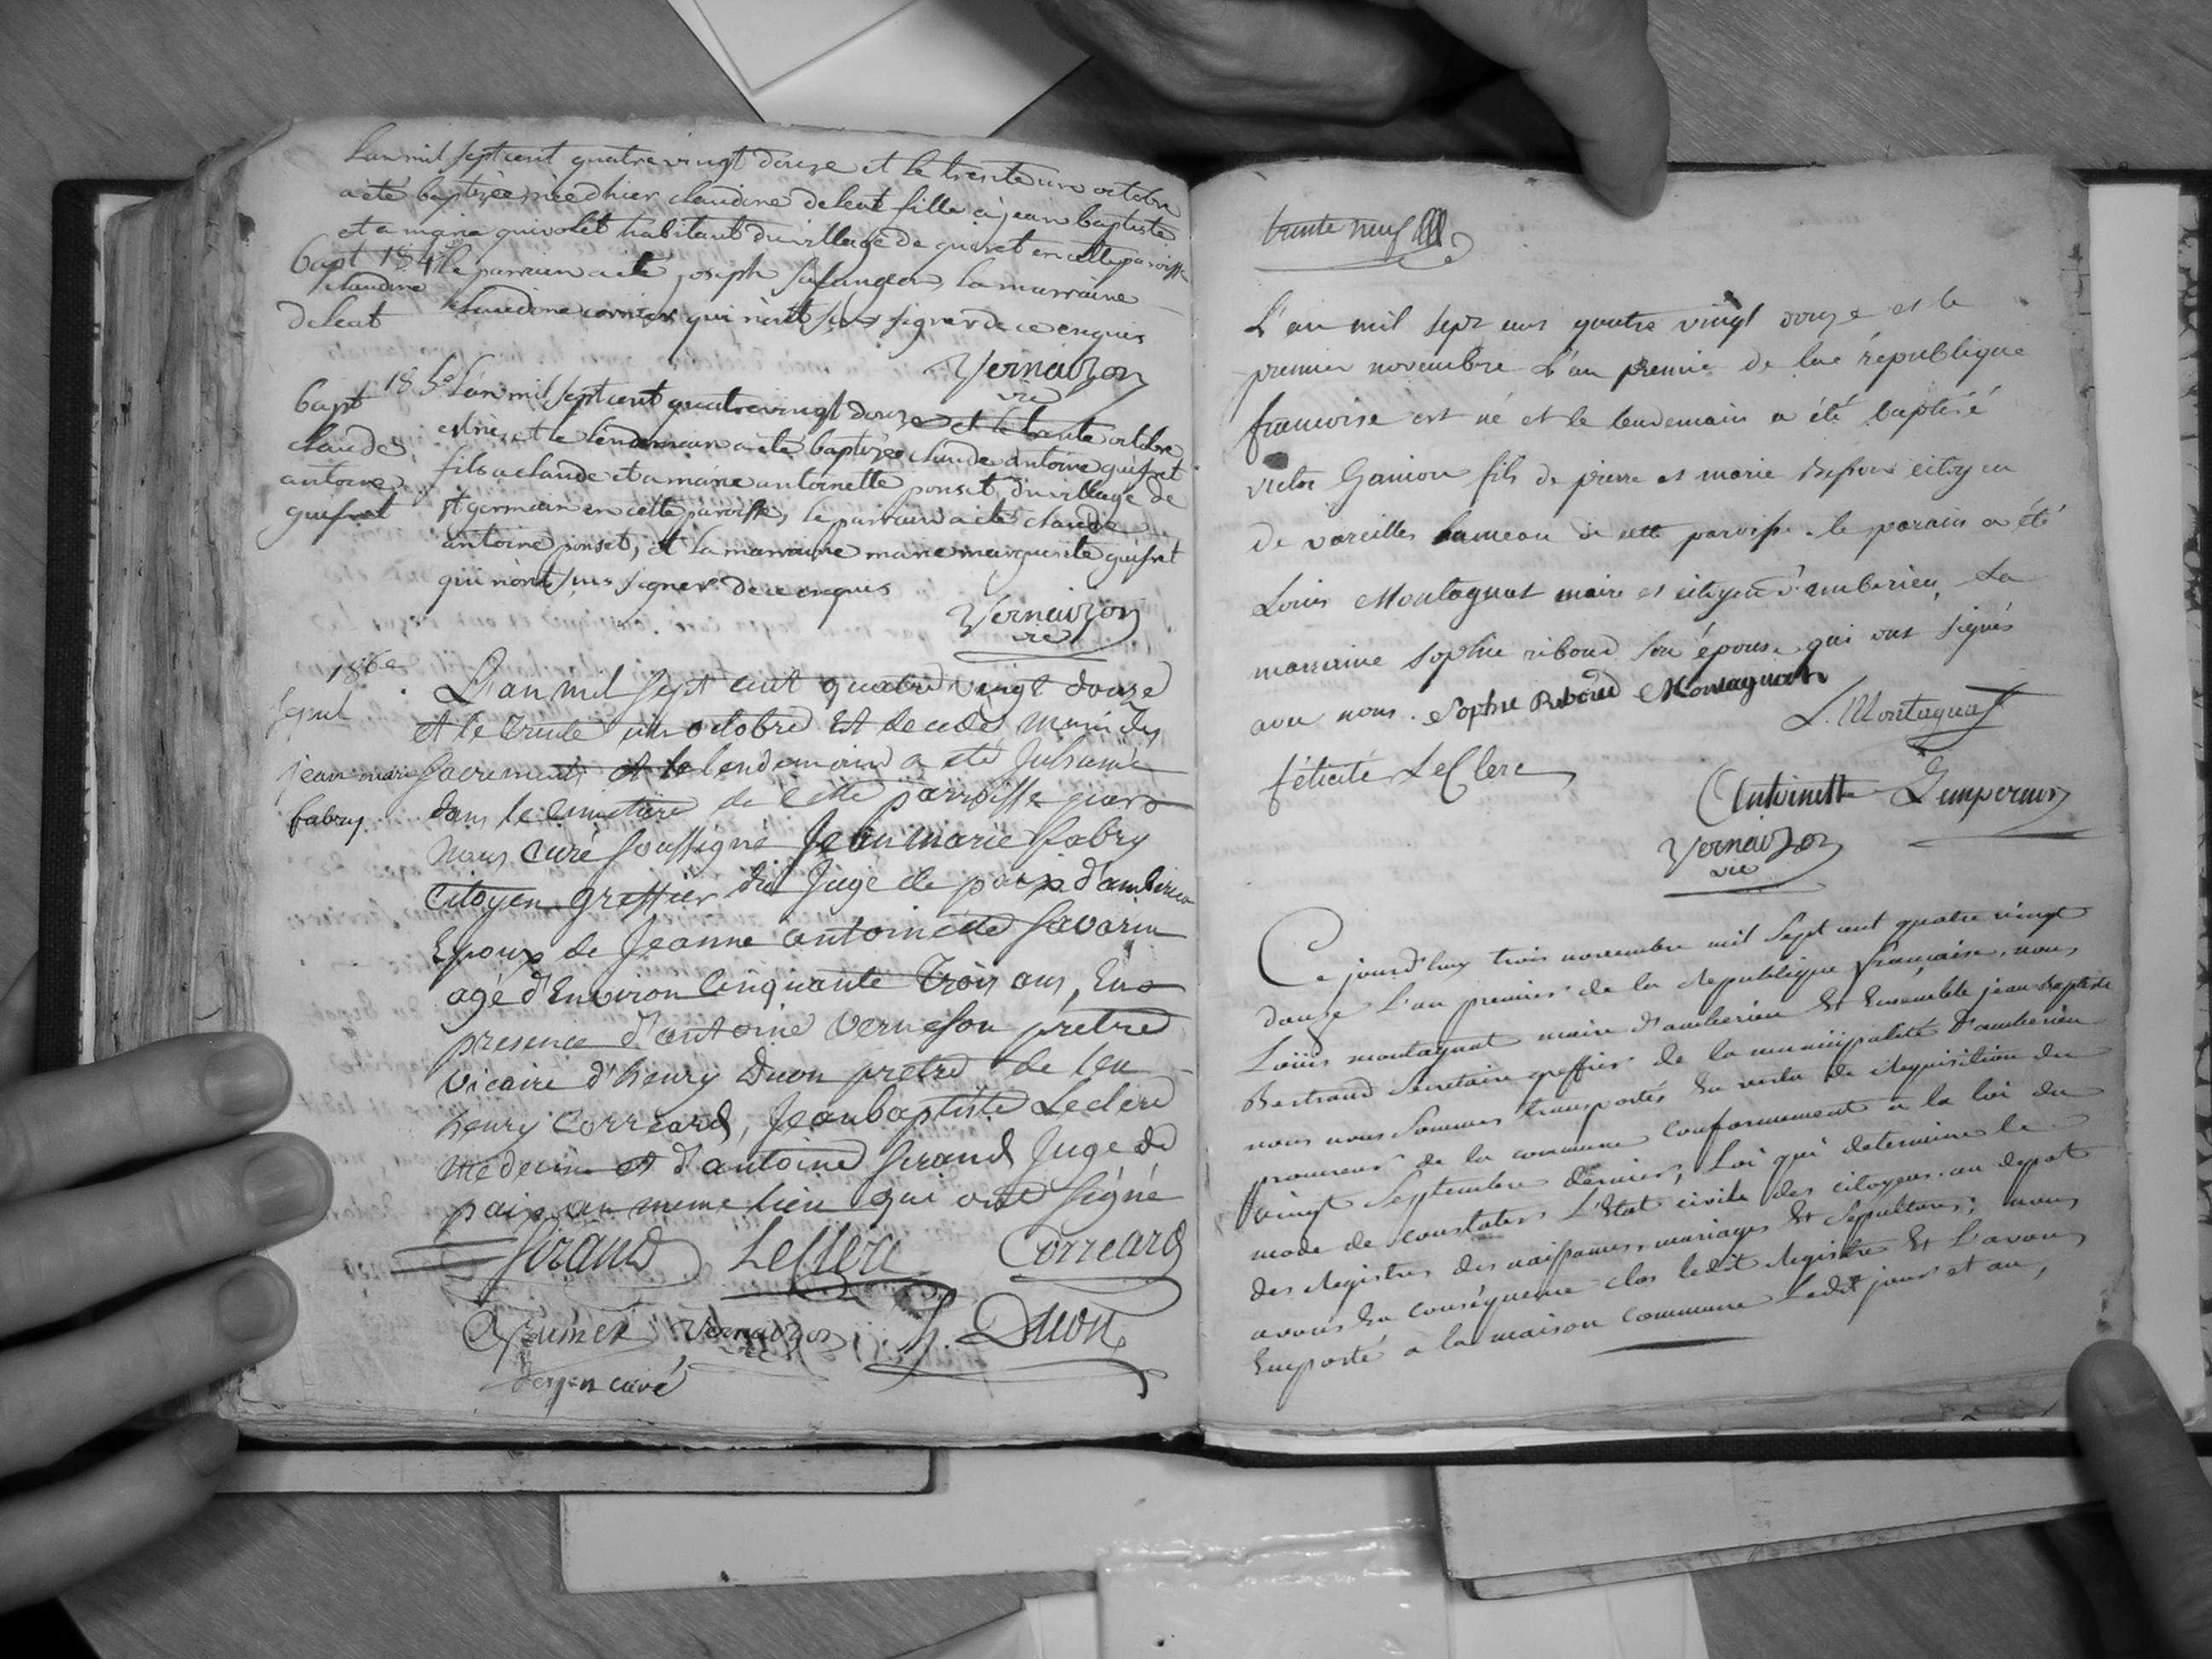 L'an mil sept cent quatre vingt douze et le trente un octobre
a été baptisée née d'hier claudine deleat fille à jean baptiste
et a marie quivolet habitant du village de guivret en cette paroisse
bapt 184e le parrain a été joseph la marraine
claudine claudine cornier qui n'ont sus signer de ce enquis
deleat
Vernaizon
vic
bapt 185e L'an mil sept cent quatre vingt douze et le trente octobre
est né, et le lendemain a été baptizé claude antoine guifret
claude fils a claude et a marie antoinette ponset du village de
antoine st germain en cette paroisse, le parrain a été claude
guifret antoine ponset, et la marraine marie marguerite guifret
qui n'ont sus signer de ce enquis
Vernaizon
vic
186e L'an mil sept cent quatre vingt douze
sepul et le trente un octobre Est decedé muni des
jean marie sacrements et le lendemain a eté Inhumé
fabry dans le cimetiere de cette parroisse par
Nous curé soussigné Jean marie fabry
Citoyen greffier du Juge de paix d'amberieu
Epoux de Jeanne antoinette Savarin
agé d'Environ Cinquante trois ans, En
presence d'antoine verneson pretre
vicaire d'henry Duon pretre de
henry Correard, Jean baptiste Leclerc
Médecin et d'antoine Girand Juge de
paix au meme lieu qui ont signé
Girand LeClerc Correard
Vernaizon h. Duon
vic
doyen curé
trente neuf
L'an mil sept cens quatre vingt douze et le
premier novembre L'an premier de la république
francoise est né et le lendemain a été baptisé
victor Ganion fils de pierre et marie citoyen
de vareilles hameau de cette paroisse. le parain a été
Louis Montagnat maire et citoyen d'amberieu, La
marraine Sophie riboud son épouse qui ont signés
avec nous. Sophie Riboud Montagnat
L. Montagnat
félicité LeClerc
Antoinette Lempereur
Vernaizon
vic
Ce jourd'huy trois novembre mil sept cent quatre vingt
douze L'an premier de la Republique française, nous
Loüis montagnat maire d'amberieu Et Ensemble jean Baptiste
Bertrand Secretaire greffier de la municipalité d'amberieu
nous nous sommes transportés En vertu de Requisition du
procureur de la commune conformement a la loi du
vingt Septembre dernier, Loi qui determine le
mode de constater L'Etat civile des citoyens au depot
des Registres des naissances, mariages Et Sepultures; nous
avons En conséquence clos ledit Registre Et L'avons
Emporté a la maison commune Ledit jour et an,